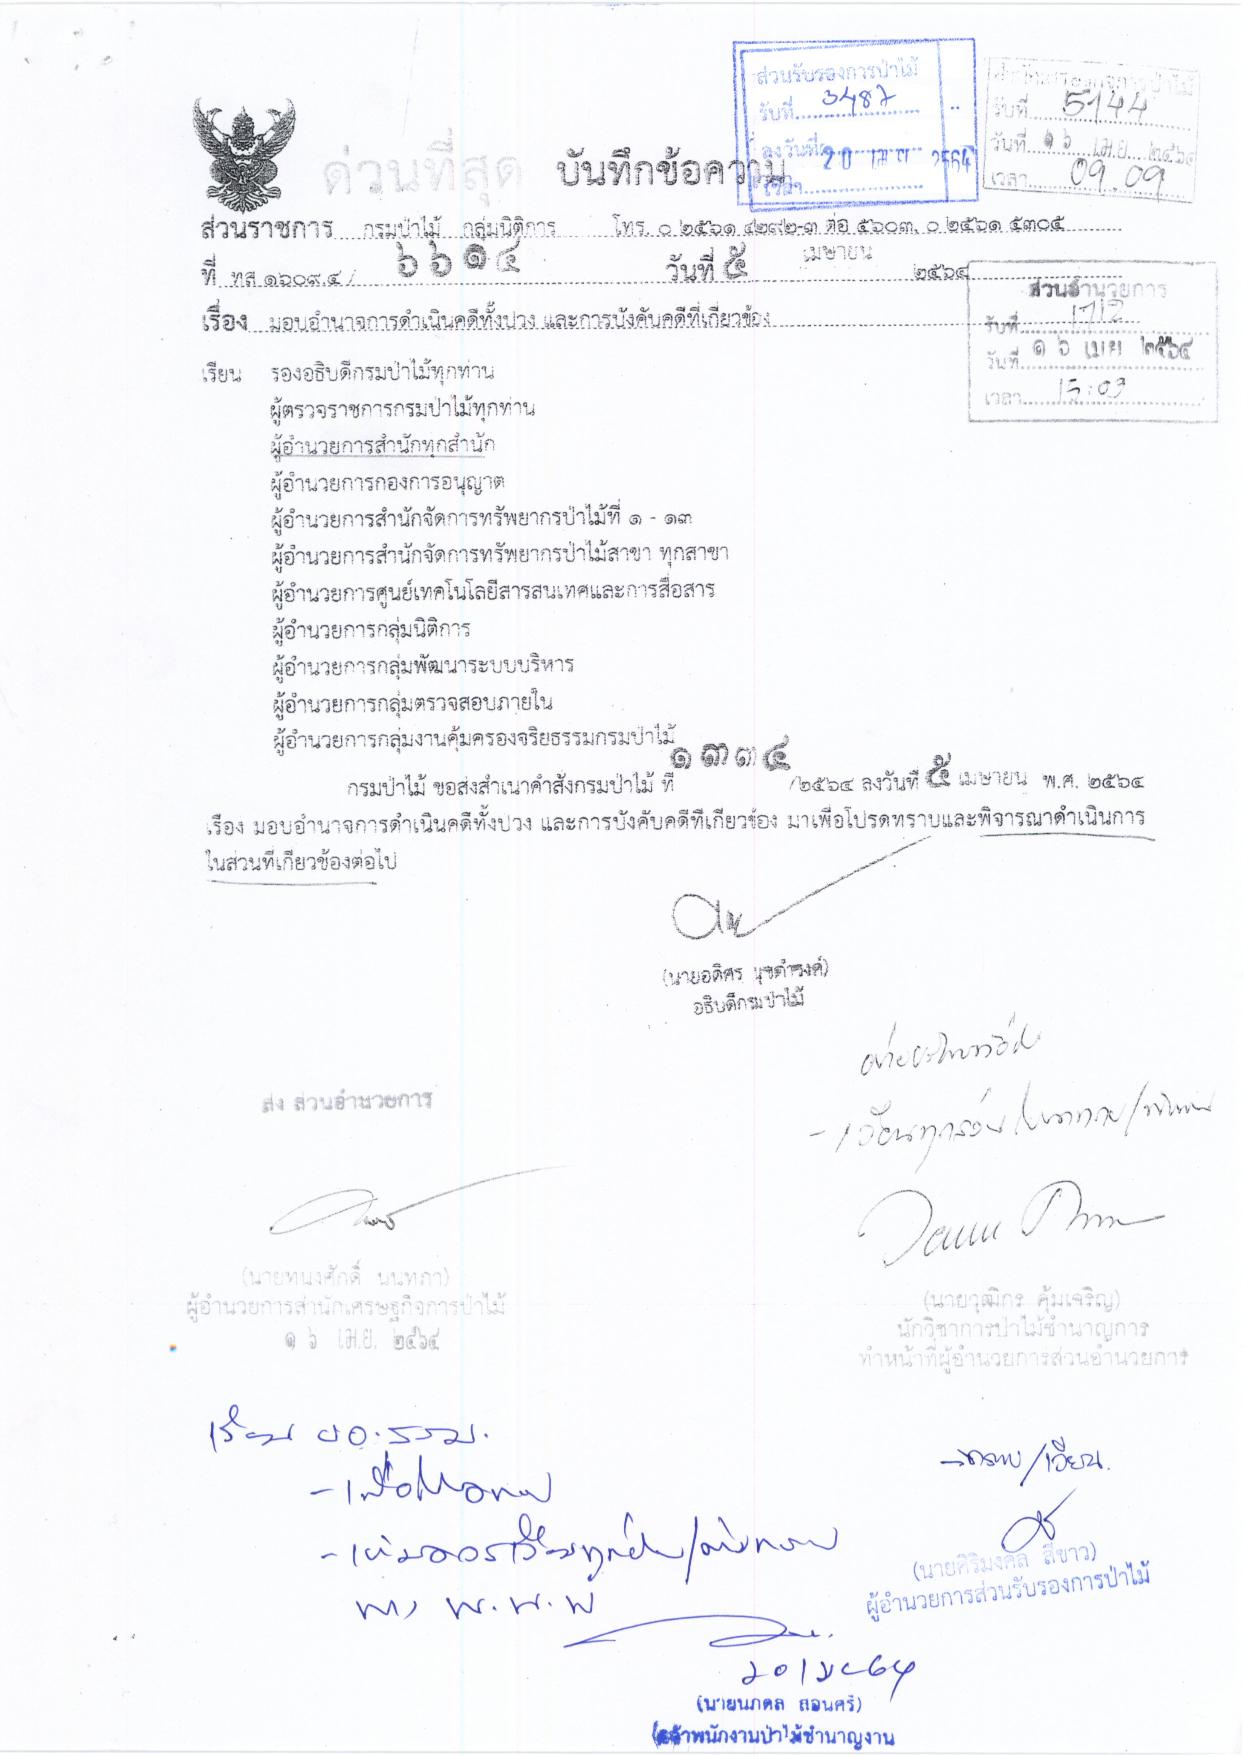 ส่วนรับรองการป่าไม้
รับที่ 3487
ลงวันที่ 20 เม.ย. 2564
เวลา
รับที่ 5144
วันที่ ๑๖ เม.ย. ๒๕๖๔
เวลา 09.09
ด่วนที่สุด บันทึกข้อความ
ส่วนราชการ กรมป่าไม้ กลุ่มนิติการ โทร. ๐ ๒๕๖๑ ๔๒๙๒-๓ ต่อ ๕๖๐๓, ๐ ๒๕๖๑ ๕๓๐๕
ที่ ทส ๑๖๐๙.๔/ ๖๖๑๔ วันที่ ๕ เมษายน ๒๕๖๔
เรื่อง มอบอำนาจการดำเนินคดีทั้งปวง และการบังคับคดีที่เกี่ยวข้อง
ส่วนอำนวยการ
รับที่ 1712
วันที่ ๑๖ เมย ๒๕๖๔
เวลา 15:03
เรียน รองอธิบดีกรมป่าไม้ทุกท่าน
ผู้ตรวจราชการกรมป่าไม้ทุกท่าน
ผู้อำนวยการสำนักทุกสำนัก
ผู้อำนวยการกองการอนุญาต
ผู้อำนวยการสำนักจัดการทรัพยากรป่าไม้ที่ ๑ - ๑๓
ผู้อำนวยการสำนักจัดการทรัพยากรป่าไม้สาขา ทุกสาขา
ผู้อำนวยการศูนย์เทคโนโลยีสารสนเทศและการสื่อสาร
ผู้อำนวยการกลุ่มนิติการ
ผู้อำนวยการกลุ่มพัฒนาระบบบริหาร
ผู้อำนวยการกลุ่มตรวจสอบภายใน
ผู้อำนวยการกลุ่มงานคุ้มครองจริยธรรมกรมป่าไม้
กรมป่าไม้ ขอส่งสำเนาคำสั่งกรมป่าไม้ ที่ ๑๓๓๔ /๒๕๖๔ ลงวันที่ ๕ เมษายน พ.ศ. ๒๕๖๔
เรื่อง มอบอำนาจการดำเนินคดีทั้งปวง และการบังคับคดีที่เกี่ยวข้อง มาเพื่อโปรดทราบและพิจารณาดำเนินการ
ในส่วนที่เกี่ยวข้องต่อไป
(นายอดิศร นุชดำรงค์)
อธิบดีกรมป่าไม้
ส่ง ส่วนอำนวยการ
(นายทนงศักดิ์ นนทภา)
ผู้อำนวยการสำนักเศรษฐกิจการป่าไม้
๑๖ เม.ย. ๒๕๖๔
(นายวุฒิกร คุ้มเจริญ)
นักวิชาการป่าไม้ชำนาญการ
ทำหน้าที่ผู้อำนวยการส่วนอำนวยการ
เรียน ผอ.รรม.
- ทราบ/เวียน.
(นายศิริมงคล สีขาว)
ผู้อำนวยการส่วนรับรองการป่าไม้
(นายนภดล สอนศรี)
เจ้าพนักงานป่าไม้ชำนาญงาน